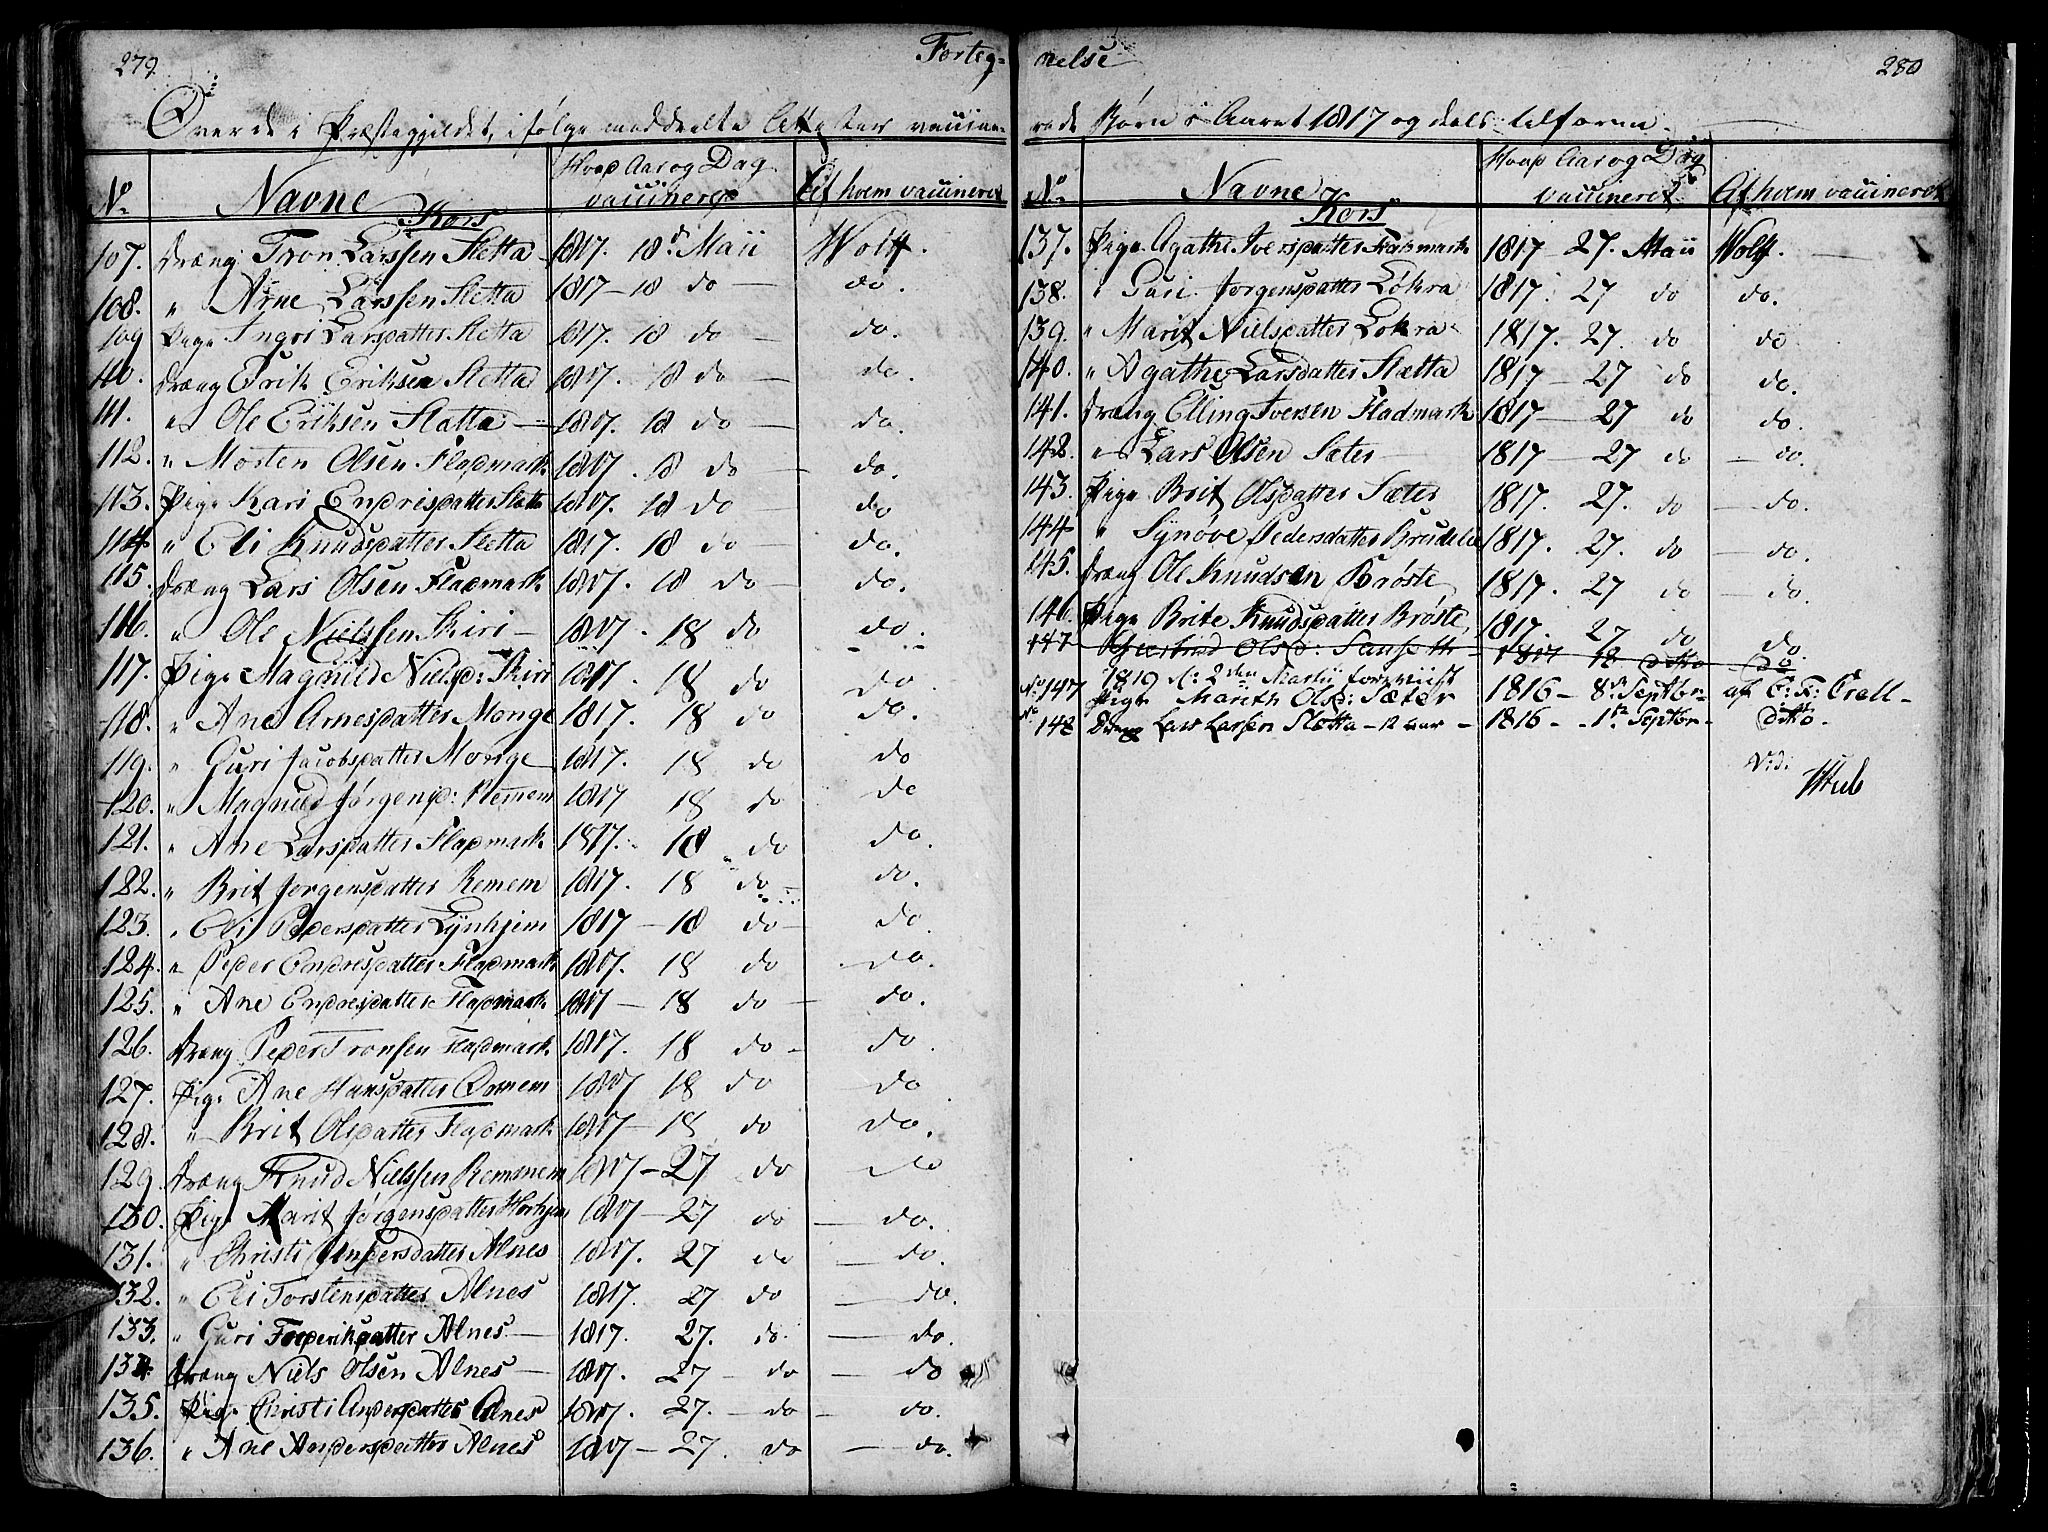 279
Forteg-
Over de i Præstegjeldet, ifølge meddeelte Attester vaccine-
No
Navne
Hvad Aar og Dag vaccineret
Af hvem vaccineret
Kors
107. Dræng Tron Larssen Sletta 1817. 18d Maii Wolff.
108. " Arne Larssen Sletta 1817 - 18 do - do.
109 Pige Ingri Larsdatter Sletta 1817. 18 do - do.
110. Dræng Erik Eriksen Sletta 1817. 18 do - do.
111. " Ole Eriksen Sletta - 1817. 18 do - do.
112. " Morten Olsen Fladmark 1817. 18 do - do.
113. Pige Kari Endresdatter Sletta 1817. 18 do - do
114 " Eli Knudsdatter Sletta 1817. 18 do - do.
115. Dræng Lars Olsen Fladmark 1817. 18 do - do.
116. " Ole Nielssen Skiri - 1817. 18 do - do.
117. Pige Magnild Nielsd: Skiri 1817. 18 do - do.
118. " Ane Arnesdatter Monge 1817. 18 do do.
119. " Guri Jacobsdatter Monge 1817. 18 do do
120. " Magnild Jørgensd: Remmem 1817 18 do do
121. " Ane Larsdatter Fladmark 1817. 18 do do.
122. " Brit Jørgensdatter Remem 1817. 18 do do.
123. " Eli Pedersdatter Lynhjem 1817 - 18 do - do.
124. " Peder Endresdatter Fladmark 1817. 18 do do.
125. " Ane Endresdatter Fladmark 1817 - 18 do - do.
126. Dræng Peder Tronsen Fladmark 1817. 18 do - do.
127. Pige Ane Hansdatter Ormem 1817 18 do do
128. " Brit Olsdatter Fladmark 1817 - 18 do do.
129. Dræng Knud Nielssen Remmem 1817 - 27 do do
130. Pige Marit Jørgensdatter Horhjem 1817 - 27 do - do.
131. " Christi Andersdatter Alnes 1817. 27 do - do.
132. " Eli Torstensdatter Alnes 1817. 27 do - do.
133. " Guri Frederiksdatter Alnes - 1817. 27. do. - do.
134. Dræng Niels Olsen Alnes - 1817. 27 - do - do
135. Pige Christi Andersdatter Alnes 1817. 27. - do - do.
136. " Ane Andersdatter Alnes 1817 - 27. do - do.
280
nelse
rede Børn i Aaret 1817 og dels tilforn.
No
Navne
Hvad Aar og Dag vaccineret
Af hvem vaccineret
Kors
137. Pige Agathe Iversdatter Fladmark 1817 - 27. Maii Wolff.
138. " Guri Jørgensdatter Løkra 1817. 27 do do.
139. " Marit Nielsdatter Løkra 1817. 27. do do
140. " Agathe Larsdatter Sletta 1817 - 27 do do.
141. Dræng Elling Iversen Fladmark 1817 - 27 do do.
142. " Lars Olsen Sæter - 1817 - 27 do - do.
143. Pige Brit Olsdatter Sæter 1817. 27. do - do.
144 " Synøve Pedersdatter Brudelie 1817. 27. do - do.
145. Dræng Ole Knudsen Brøste, 1817. 27 do - do.
146. Pige Brite Knudsdatter Brøste, 1817. 27 do do.
147 Giertrud Olsd: 1817 18 ditto do
1819 d: 2den Martii foreviist
No 147 Pige Marith Olsd: Sæter 1816 - 8de Septbr - af C: F: Krell -
No 148 Dreng Lars Larsen Sletta - 12 aar - 1816 - 1te Septbr - ditto -
Vidi
Stub